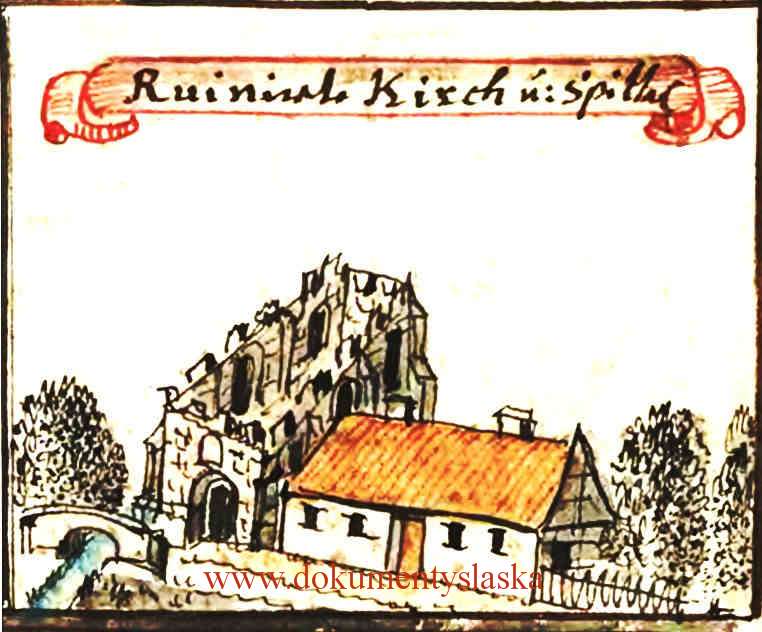 Ruinirte Kirch u: Spittal
www.dokumentyslaska